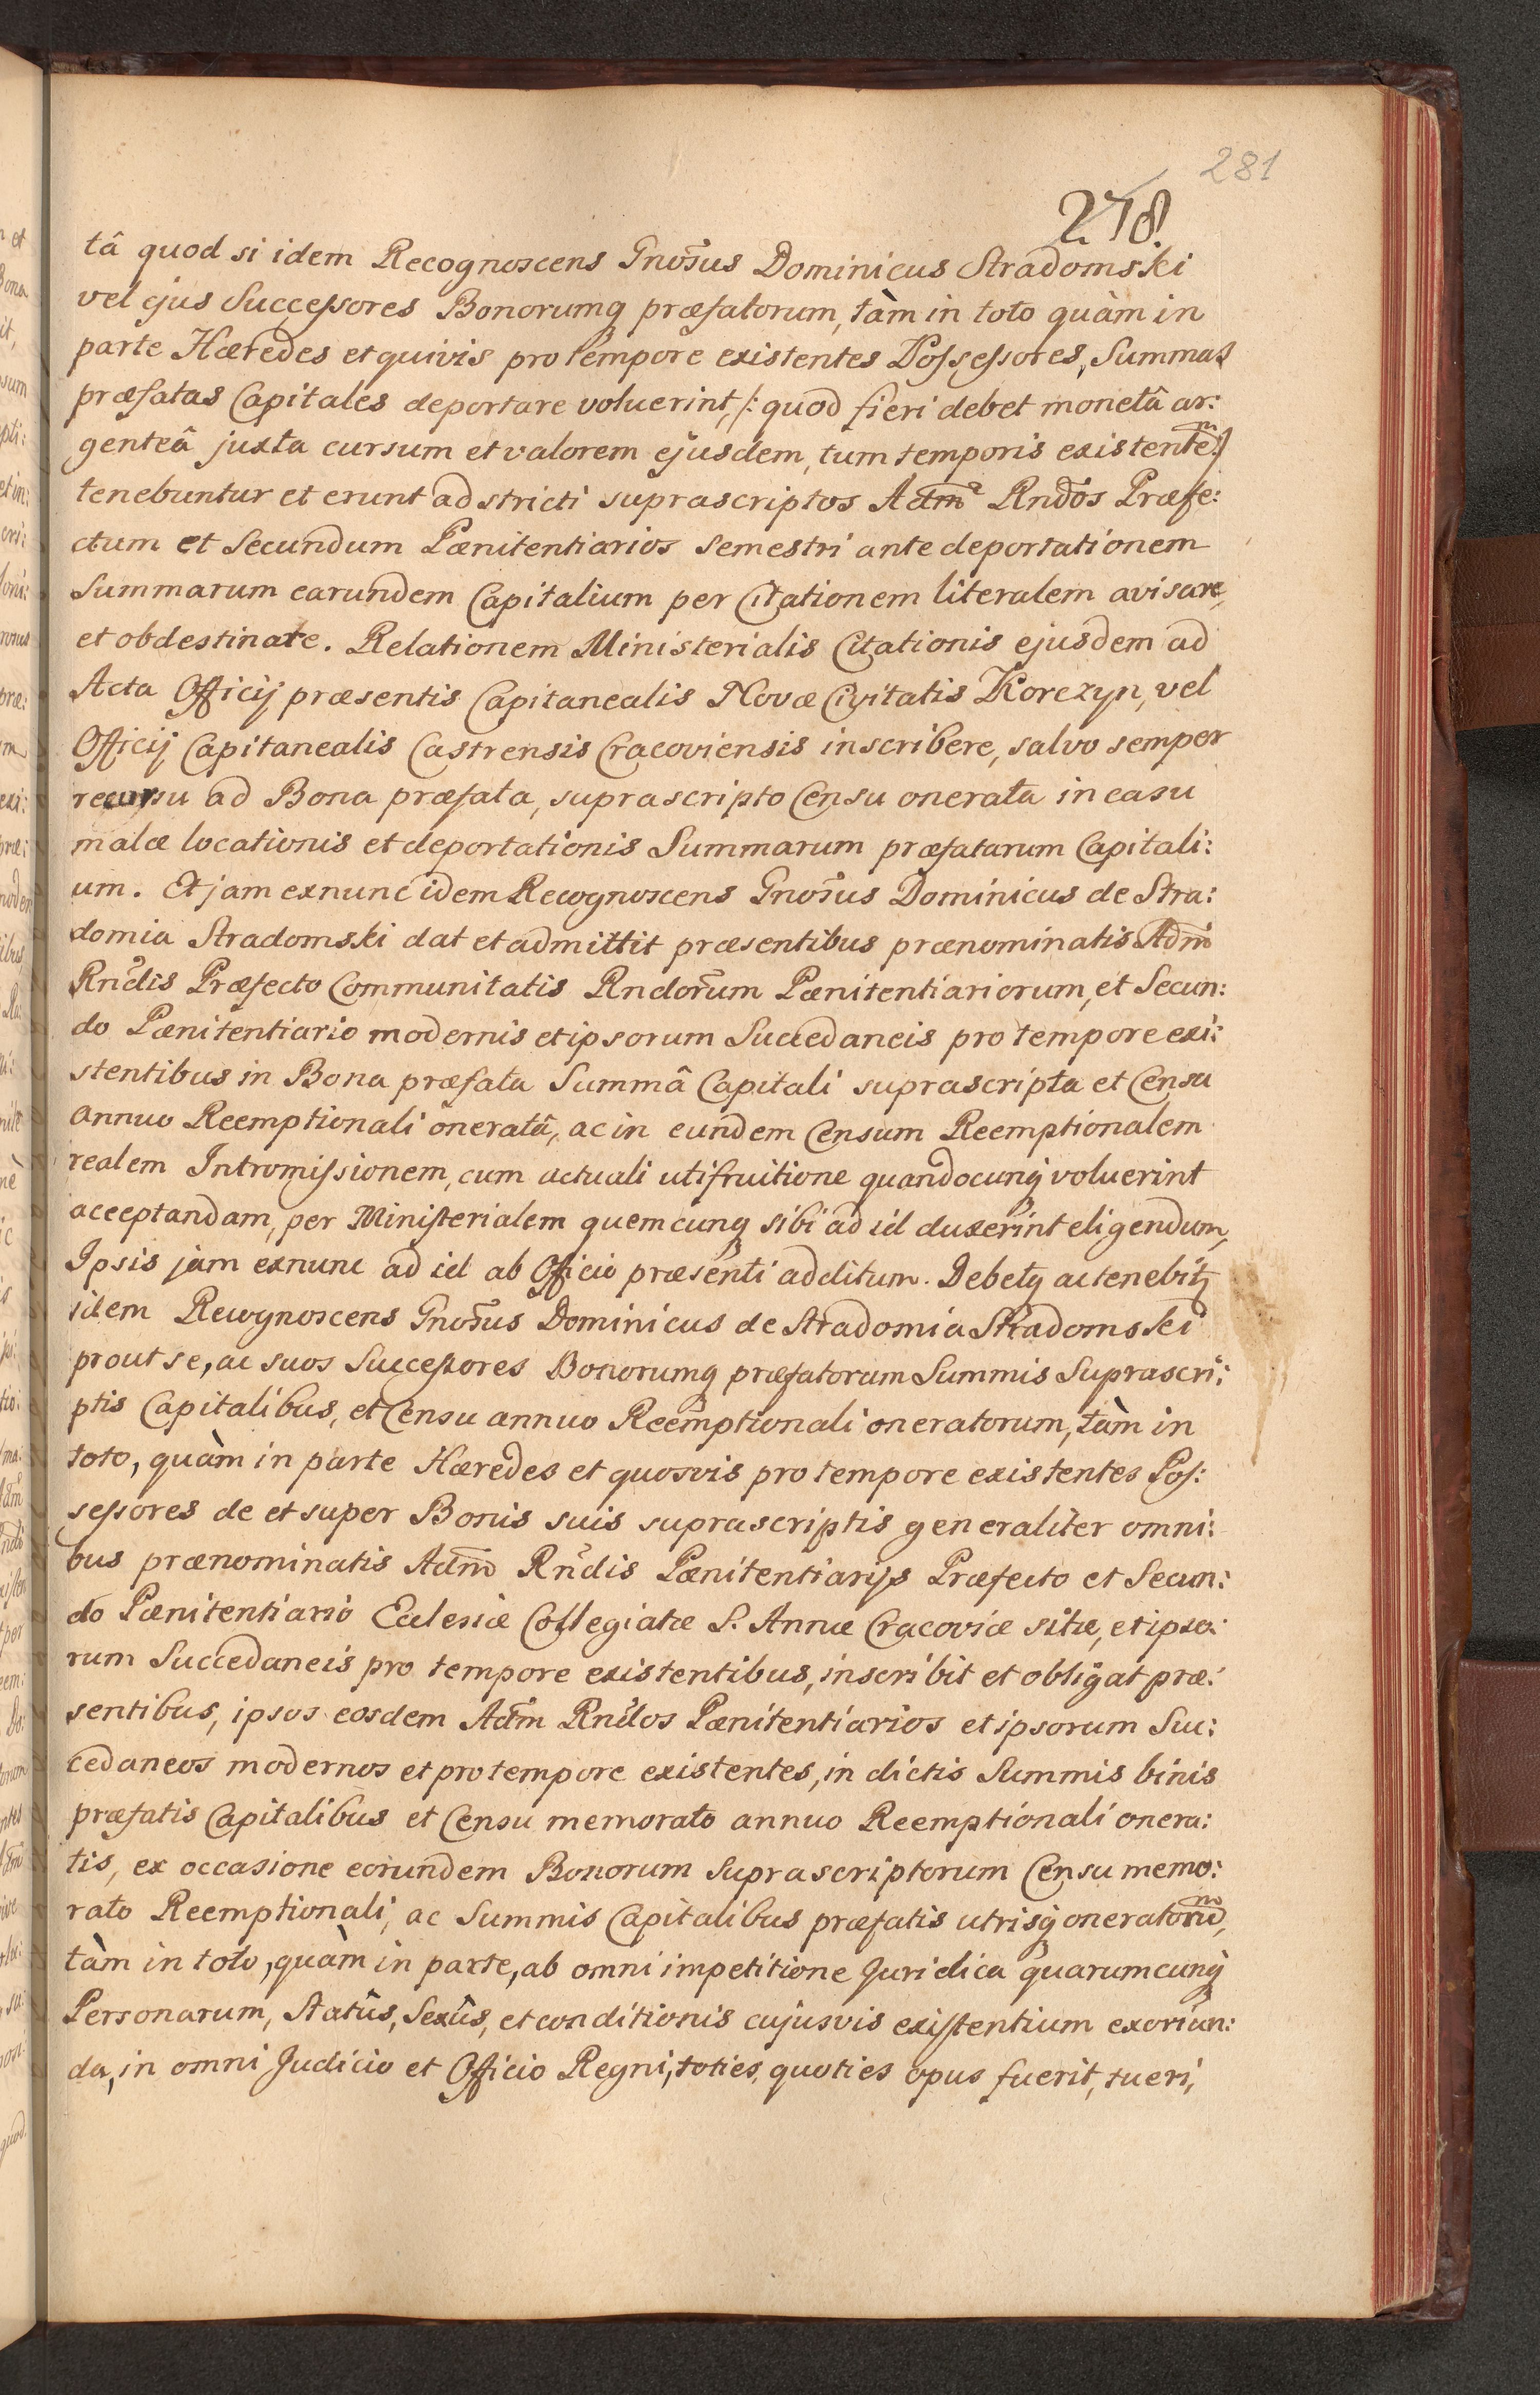 281
278.
tâ quod si idem Recognoscens Gnosus Dominicus Stradomski
vel ejus Successores Bonorumq præfatorum, tàm in toto quàm in
parte Hæredes et quivis pro tempore existentes Possessores, Summas
præfatas Capitales deportare voluerint, /: quod fieri debet monetâ ar:
genteâ juxta cursum et valorem ejusdem, tum temporis existentem :/
tenebuntur et erunt adstricti suprascriptos Adm Rndos Præfe:
ctum et Secundum Pænitentiarios semestri ante deportationem
Summarum earundem Capitalium per Citationem literalem avisare,
et obdestinare. Relationem Ministerialis Citationis ejusdem ad
Acta Officij præsentis Capitanealis Novæ Civitatis Korczyn, vel
Officij Capitanealis Castrensis Cracoviensis inscribere, salvo semper
recursu ad Bona præfata, suprascripto Censu onerata in casu
malæ locationis et deportationis Summarum præfatarum Capitali:
um. Et jam exnunc idem Recognoscens Gnosus Dominicus de Stra:
domia Stradomski dat et admittit præsentibus prænominatis Adm
Rndis Præfecto Communitatis Rndorum Pænitentiariorum, et Secun:
do Pænitentiario modernis et ipsorum Succedaneis pro tempore exi:
stentibus in Bona præfata Summâ Capitali suprascripta et Censu
annuo Reemptionali oneratâ, ac in eundem Censum Reemptionalem
realem Intromissionem, cum actuali utifruitione quandocunq voluerint
acceptandam, per Ministerialem quemcunq sibi ad id duxerint eligendum,
Ipsis jam exnunc ad id ab Officio præsenti additum. Debetq ac tenebitq
idem Recognoscens Gnosus Dominicus de Stradomia Stradomski
prout se, ac suos Successores Bonorumq præfatorum Summis Suprascri:
ptis Capitalibus, et Censu annuo Reemptionali oneratorum, tàm in
toto, quàm in parte Hæredes et quosvis pro tempore existentes Pos:
sessores de et super Bonis suis suprascriptis generaliter omni:
bus prænominatis Adm Rndis Pænitentiarijs Præfecto et Secun:
do Pænitentiario Ecclesiæ Collegiatæ S. Annæ Cracoviæ sitæ, et ipso:
rum Succedaneis pro tempore existentibus, inscribit et obligat præ:
sentibus, ipsos eosdem Adm Rndos Pænitentiarios et ipsorum Suc:
cedaneos modernos et pro tempore existentes, in dictis Summis binis
præfatis Capitalibus et Censu memorato annuo Reemptionali onera:
tis, ex occasione eorundem Bonorum Suprascriptorum Censu memo:
rato Reemptionali, ac Summis Capitalibus præfatis utrisq oneratorum,
tàm in toto, quàm in parte, ab omni impetitione Juridica quarumcunq
Personarum, Statûs, Sexûs, et conditionis cujusvis existentium exoriun:
da, in omni Judicio et Officio Regni, toties, quoties opus fuerit, tueri,